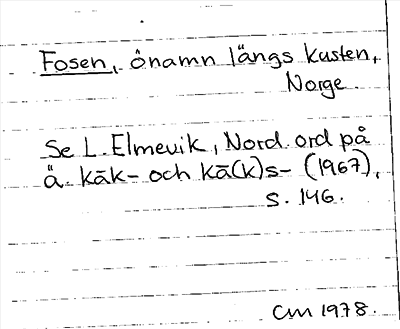 Fosen, önamn längs kusten,
Norge.
Se L. Elmevik, Nord. ord på
ä. kāk- och kā(k)s- (1967),
s. 146.
CM 1978.